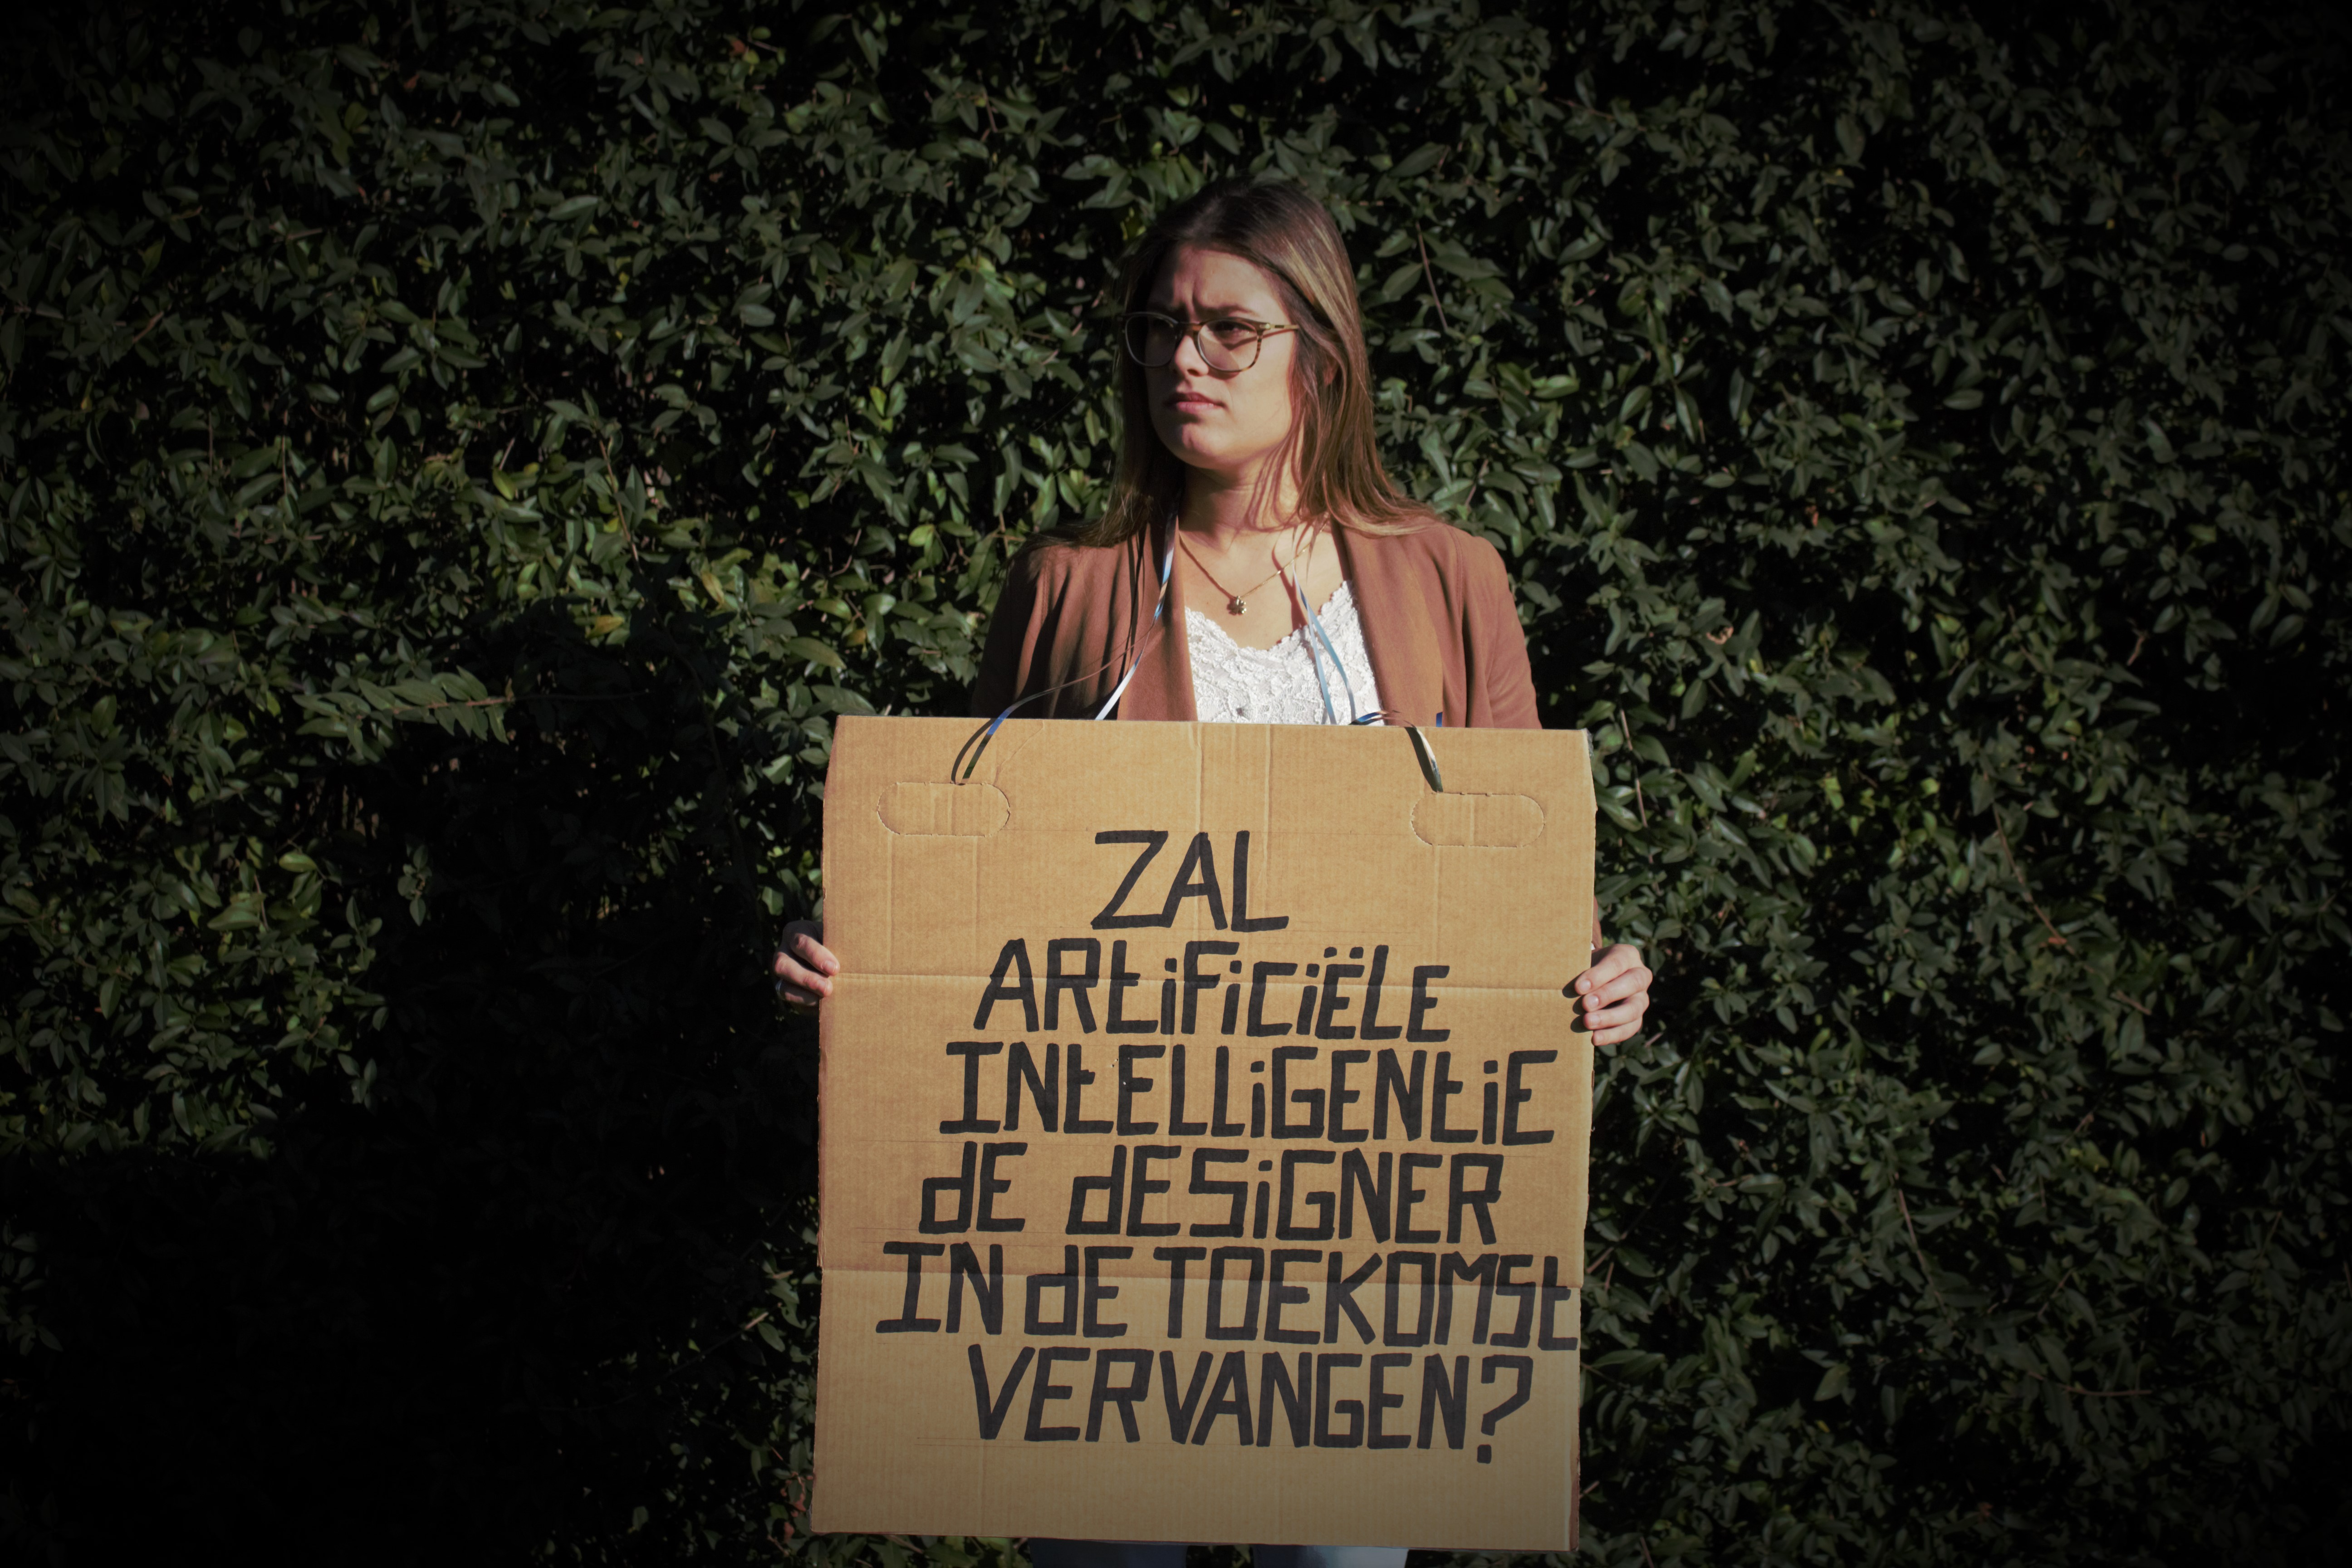 ZAL
ARtiFiCiËLE
INtELLiGENtiE
dE dESiGNER
IN dE TOEKOMSt
VERVANGEN?